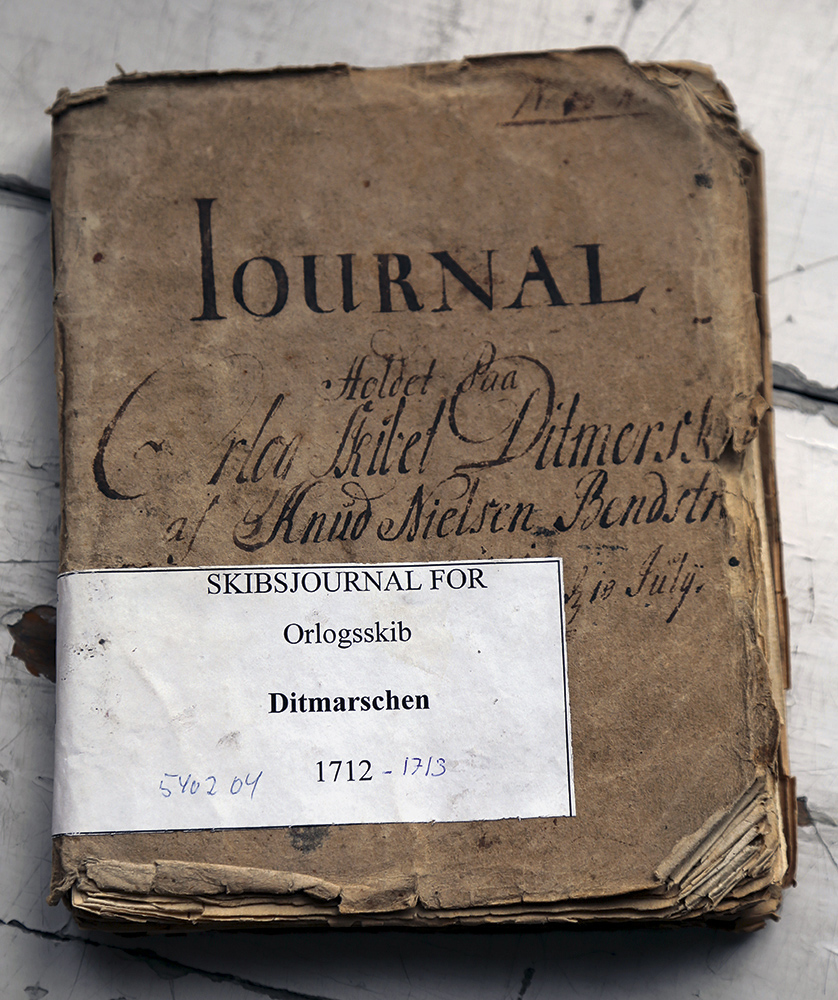 IOURNAL
Holdet Paa
Orlog Skibet Ditmersk
af Knud Nielsen Bendstr
10 July.
SKIBSJOURNAL FOR
Orlogsskib
Ditmarschen
1712 - 1713
540204